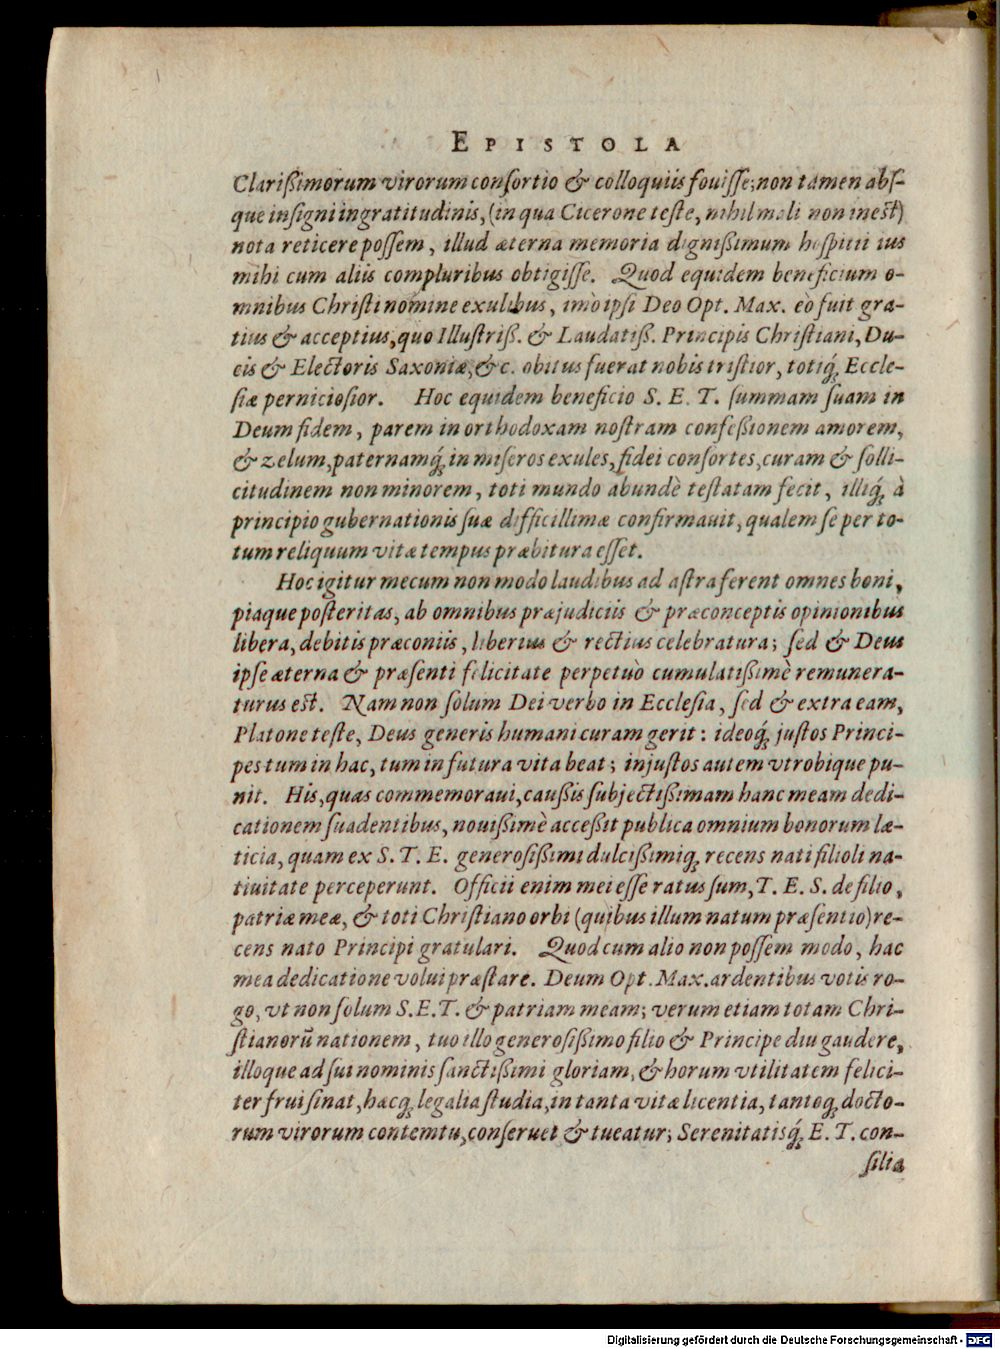 EPISTOLA
Clarißimorum virorum conſortio & colloquiis fouiſſe; non tamen abſ-
que inſigni ingratitudinis, (in qua Cicerone teſte, nihil mali non ineſt)
nota reticere poſſem, illud æterna memoria dignißimum hoſpitii ius
mihi cum aliis compluribus obtigiſſe. Quod equidem beneficium o-
mnibus Chriſti nomine exulibus, imò ipſi Deo Opt. Max. eò fuit gra-
tius & acceptius, quo Illuſtriß. & Laudatiß. Principis Chriſtiani, Du-
cis & Electoris Saxoniæ, &c. obitus fuerat nobis triſtior, totiq́; Eccle-
ſiæ pernicioſior. Hoc equidem beneficio S. E. T. ſummam ſuam in
Deum fidem, parem in orthodoxam noſtram confeßionem amorem,
& zelum, paternamq́; in miſeros exules, fidei conſortes, curam & ſolli-
citudinem non minorem, toti mundo abundè teſtatam fecit, illiq́; à
principio gubernationis ſuæ difficillimæ confirmauit, qualem ſe per to-
tum reliquum vitæ tempus præbitura eſſet.
Hoc igitur mecum non modo laudibus ad aſtra ferent omnes boni,
piaque poſteritas, ab omnibus præjudiciis & præconceptis opinionibus
libera, debitis præconiis, liberius & rectius celebratura; ſed & Deus
ipſe æterna & præſenti felicitate perpetuò cumulatißimè remunera-
turus eſt. Nam non ſolum Dei verbo in Eccleſia, ſed & extra eam,
Platone teſte, Deus generis humani curam gerit: ideoq́; juſtos Princi-
pes tum in hac, tum in futura vita beat; injuſtos autem vtrobique pu-
nit. His, quas commemoraui, cauſſis ſubjectißimam hanc meam dedi-
cationem ſuadentibus, nouißimè acceßit publica omnium bonorum læ-
ticia, quam ex S. T. E. generoſißimi dulcißimiq́; recens nati filioli na-
tiuitate perceperunt. Officii enim mei eſſe ratus ſum, T. E. S. de filio,
patriæ meæ, & toti Chriſtiano orbi (quibus illum natum præſentio) re-
cens nato Principi gratulari. Quod cum alio non poſſem modo, hac
mea dedicatione volui præſtare. Deum Opt. Max. ardentibus votis ro-
go, vt non ſolum S. E. T. & patriam meam; verum etiam totam Chri-
ſtianorũ nationem, tuo illo generoſißimo filio & Principe diu gaudere,
illoque ad ſui nominis ſanctißimi gloriam, & horum vtilitatem felici-
ter frui ſinat, hæcq́; legalia ſtudia, in tanta vitæ licentia, tantoq́; docto-
rum virorum contemtu, conſeruet & tueatur; Serenitatisq́; E. T. con-
ſilia
Digitalisierung gefördert durch die Deutsche Forschungsgemeinschaft - DFG